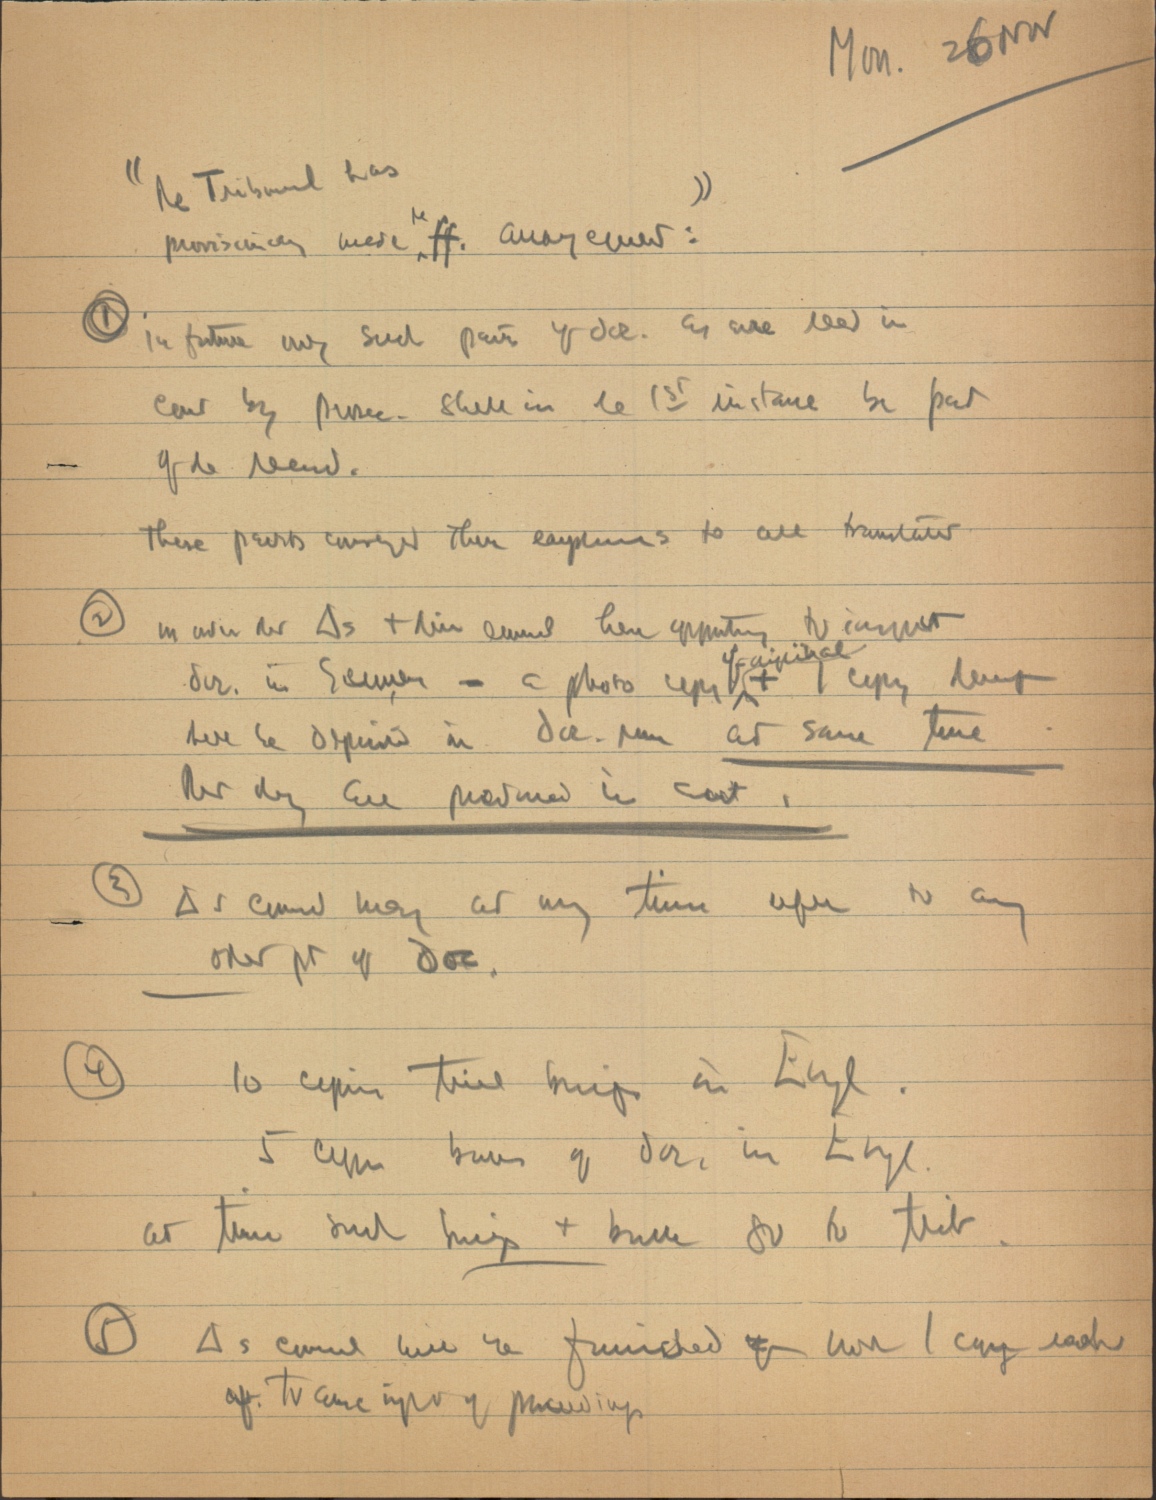 Mon. 26 Nov
"The Tribunal has
provisionally made the ff. arrangement:"
① in future only such parts of doc. as are read in
court by prosec. shall in the 1st instance be part
of the record.
These parts conveyed thru earphones to all translated
② in order that Δs + their counsel have opportunity to inspect
doc. in German - a photo copy of original + 1 copy
here be deposited in doc. room at same time
that they are produced in court.
③ Δs counsel may at any time refer to any
other pt of doc.
④ 10 copies trial briefs in Engl.
5 copies books of doc. in Engl.
at time such briefs + books go to trib.
⑤ Δs counsel will be furnished w 1 copy each
of proceedings